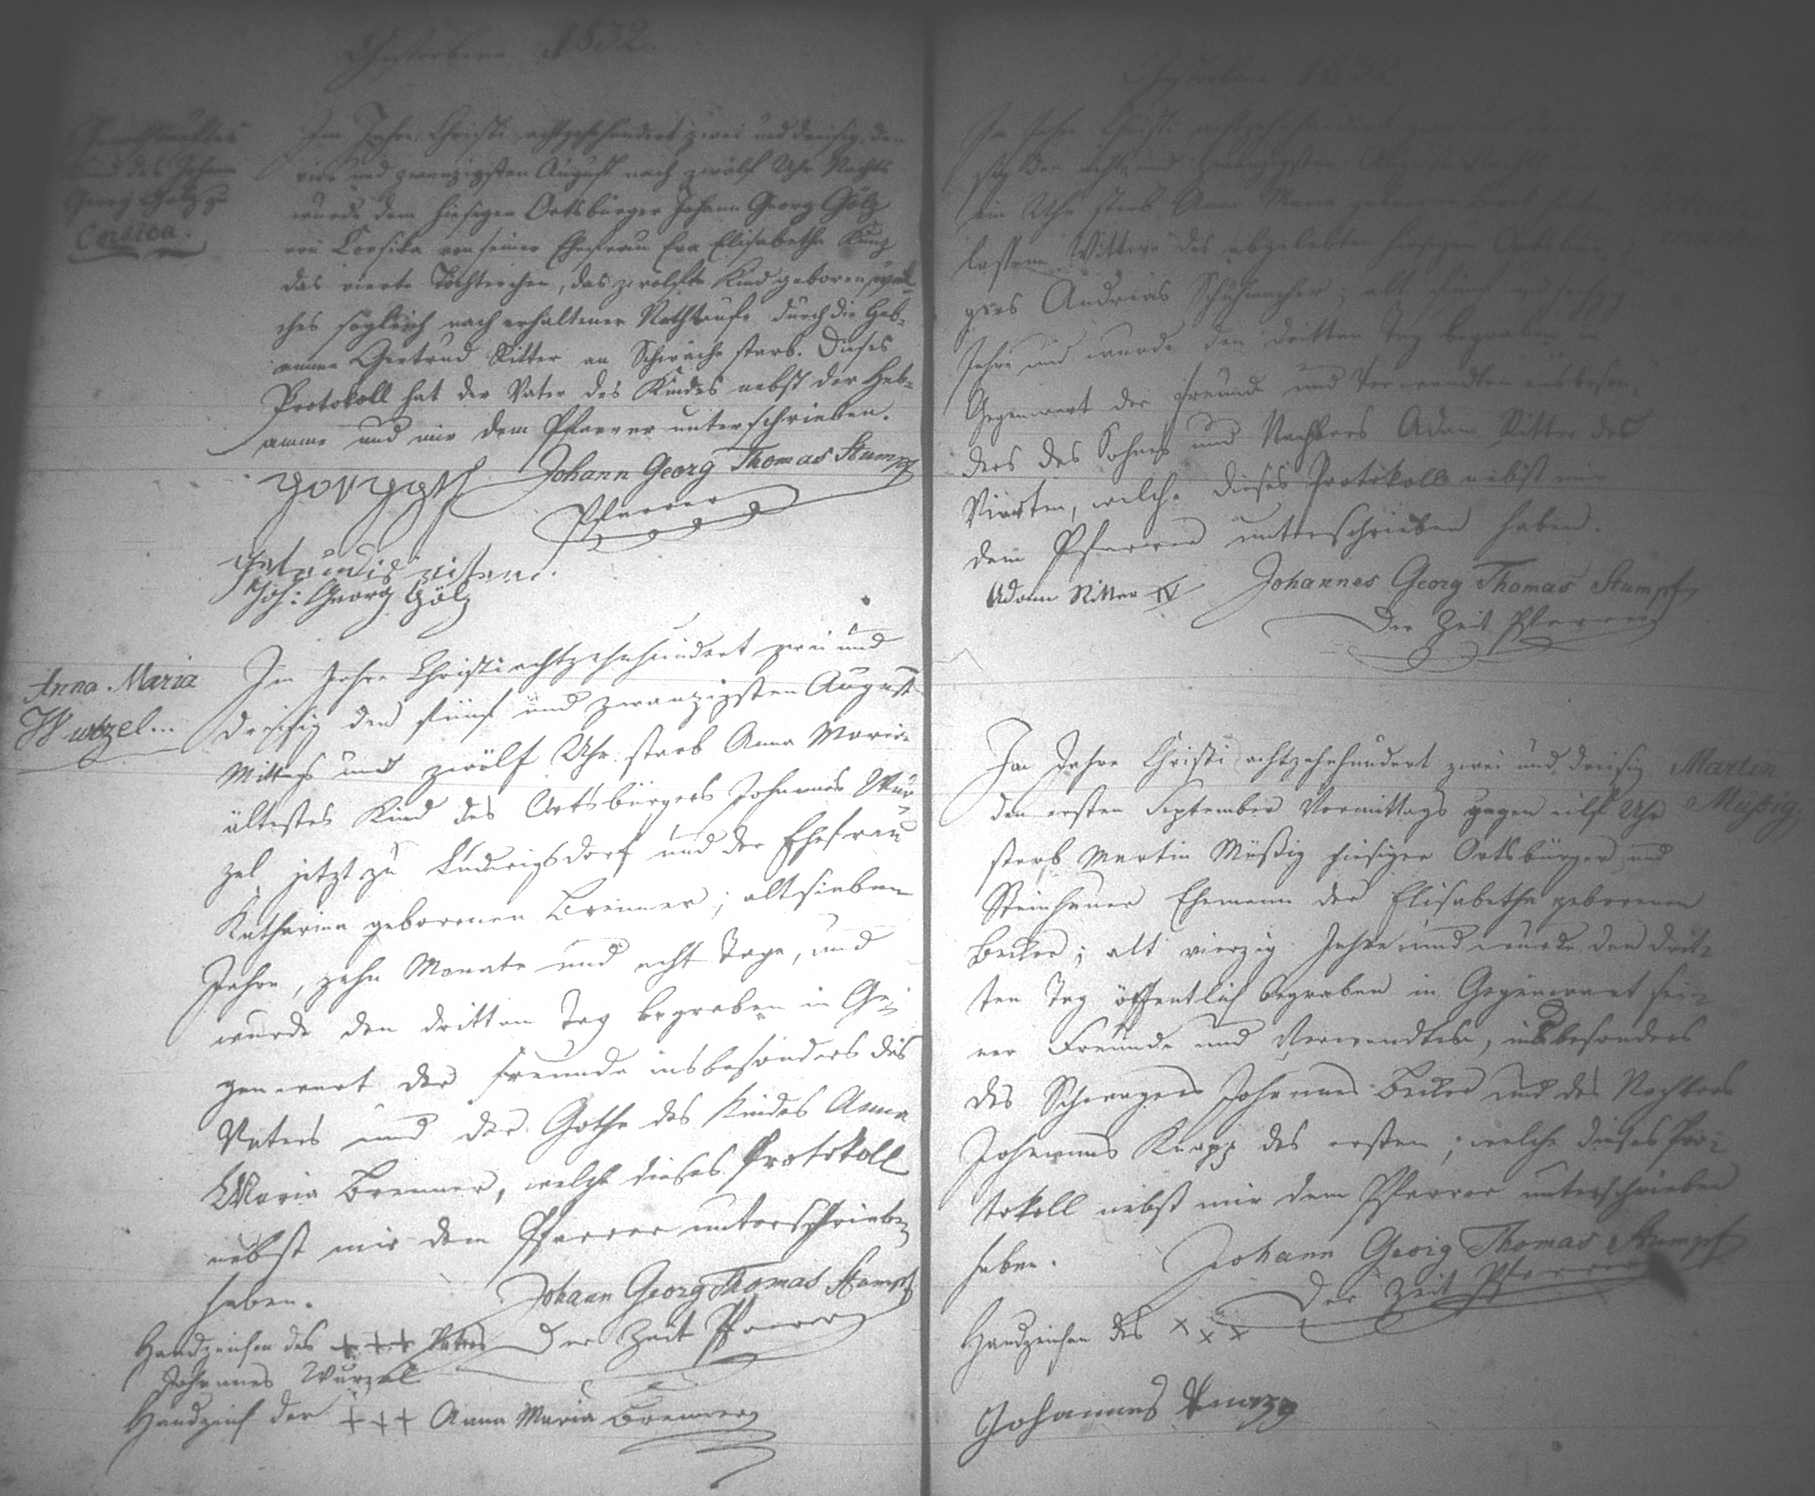 Gestorbene 1832.
Kind des Johann
Georg Gölz zu
Corsica.
Im Jahre Christi achtzehnhundert zwei und dreisig, den
vier und zwanzigsten August nach zwölf Uhr Nachts
wurde dem hiesigen Ortsbürger Johann Georg Gölz
von Corsika von seiner Ehefrau Eva Elisabetha Kunz
das vierte Töchterchen, das zwölfte Kind geboren, wel-
ches sogleich nach erhaltener Nothtaufe durch die Heb-
amme Gertrud Ritter an Schwäche starb. Dieses
Protokoll hat der Vater des Kindes nebst der Heb-
amme und mir dem Pfarrer unterschrieben.
Johann Georg Thomas Stumpf
Pfarrer
Joh: Georg Gölz
Anna Maria
Wurzel...
Im Jahre Christi achtzehnhundert zwei und
dreisig den fünf und zwanzigsten August
Mittags um zwölf Uhr starb Anna Maria
ältestes Kind des Ortsbürgers Johannes Wur-
zel jetzt zu Ludwigsdorf und der Ehefrau
Katharina geborenen Brenner; alt sieben
Jahre, zehn Monate und acht Tage, und
wurde den dritten Tag begraben in Ge-
genwart der Freunde insbesonders des
Vaters und der Gothe des Kindes Anna
Maria Brenner, welche dieses Protokoll
nebst mir dem Pfarrer unterschrieben
haben.
Johann Georg Thomas Stumpf
Der Zeit Pfarrer
Handzeichen des +++ Vaters
Johannes Wurzel
Handzeich der +++ Anna Maria Brenner
Im Jahre Christi achtzehnhundert
sig den acht und zwanzigsten August
ein Uhr starb Anna Maria
lassene Wittwe des abgelebten hiesigen Ortsbür-
gers Andreas Schuhmacher; alt fünf und sechzig
Jahre und wurde den dritten Tag begraben in
Gegenwart der Freunde und Verwandten insbeson-
ders des Sohnes und Nachbars Adam Ritter des
Vierten, welche dieses Protokoll nebst mir
dem Pfarrer unterschrieben haben.
Adam Ritter IV
Johannes Georg Thomas Stumpf
Der Zeit Pfarrer
Im Jahre Christi achtzehnhundert zwei und dreisig
den ersten September Vormittags gegen eilf Uhr
starb Martin Müßig hiesiger Ortsbürger und
Steinhauer Ehemann der Elisabetha geborenen
Becker; alt vierzig Jahre und wurde den drit-
ten Tag öffentlich begraben in Gegenwart sei-
ner Freunde und Verwandten, insbesonders
des Schwagers Johannes Becker und des Nachbars
Johannes Knapp des ersten; welche dieses Pro-
tokoll nebst mir dem Pfarrer unterschrieben
haben.
Martin
Müßig.
Johann Georg Thomas Stumpf
Der Zeit Pfarrer
Handzeichen des xxx
Johannes